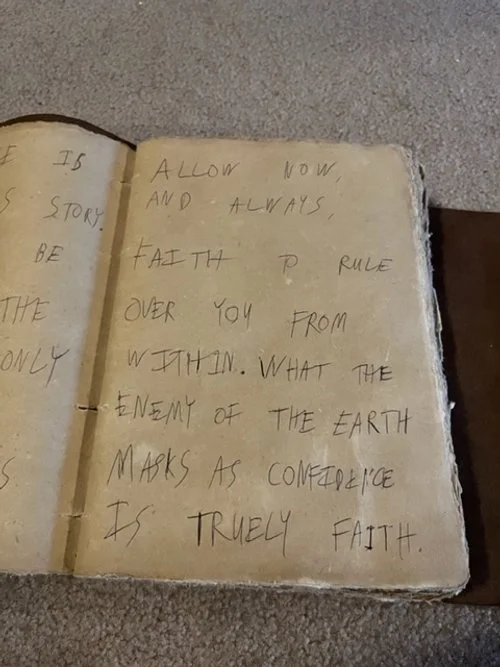 E IS
S STORY.
BE
THE
ONLY
S.
ALLOW NOW,
AND ALWAYS,
FAITH TO RULE
OVER YOU FROM
WITHIN. WHAT THE
ENEMY OF THE EARTH
MASKS AS CONFIDENCE
IS TRUELY FAITH.